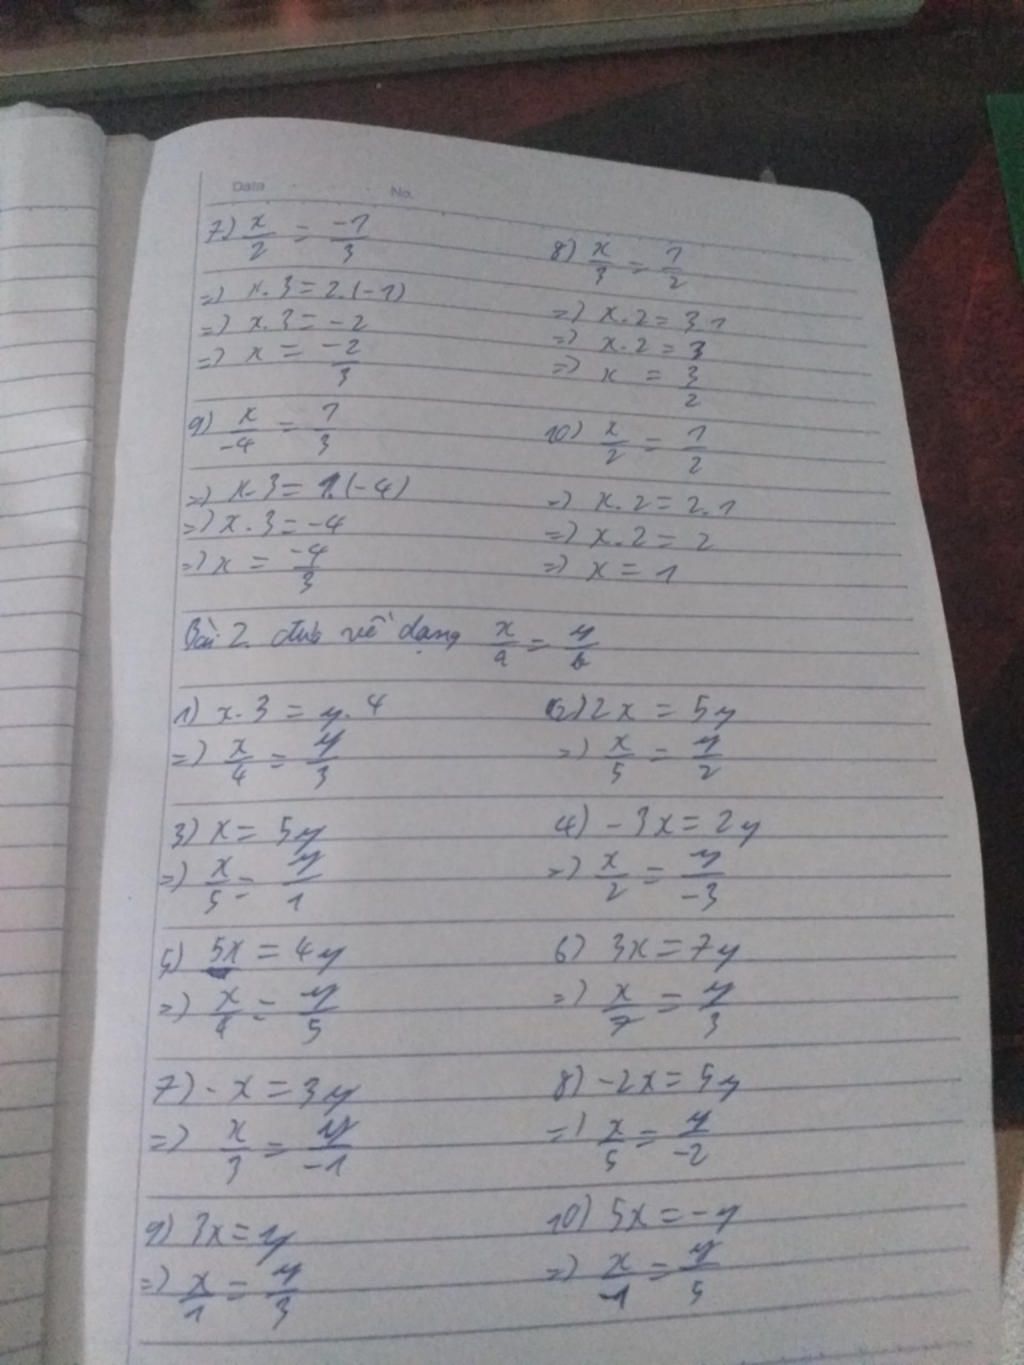 Data No.
7) x/2 = -1/3
=) x.3 = 2.(-1)
=) x.3 = -2
=) x = -2/3
8) x/3 = 1/2
=) x.2 = 3.1
=) x.2 = 3
=) x = 3/2
9) x/-4 = 1/3
=) x.3 = 1.(-4)
=) x.3 = -4
=) x = -4/3
10) x/2 = 1/2
=) x.2 = 2.1
=) x.2 = 2
=) x = 1
Bài 2. đưa về dạng x/a = y/b
1) x.3 = y.4
=) x/4 = y/3
2) 2x = 5y
=) x/5 = y/2
3) x = 5y
=) x/5 = y/1
4) -3x = 2y
=) x/2 = y/-3
5) 5x = 4y
=) x/4 = y/5
6) 3x = 7y
=) x/7 = y/3
7) -x = 3y
=) x/3 = y/-1
8) -2x = 5y
=) x/5 = y/-2
9) 3x = y
=) x/1 = y/3
10) 5x = -y
=) x/-1 = y/5